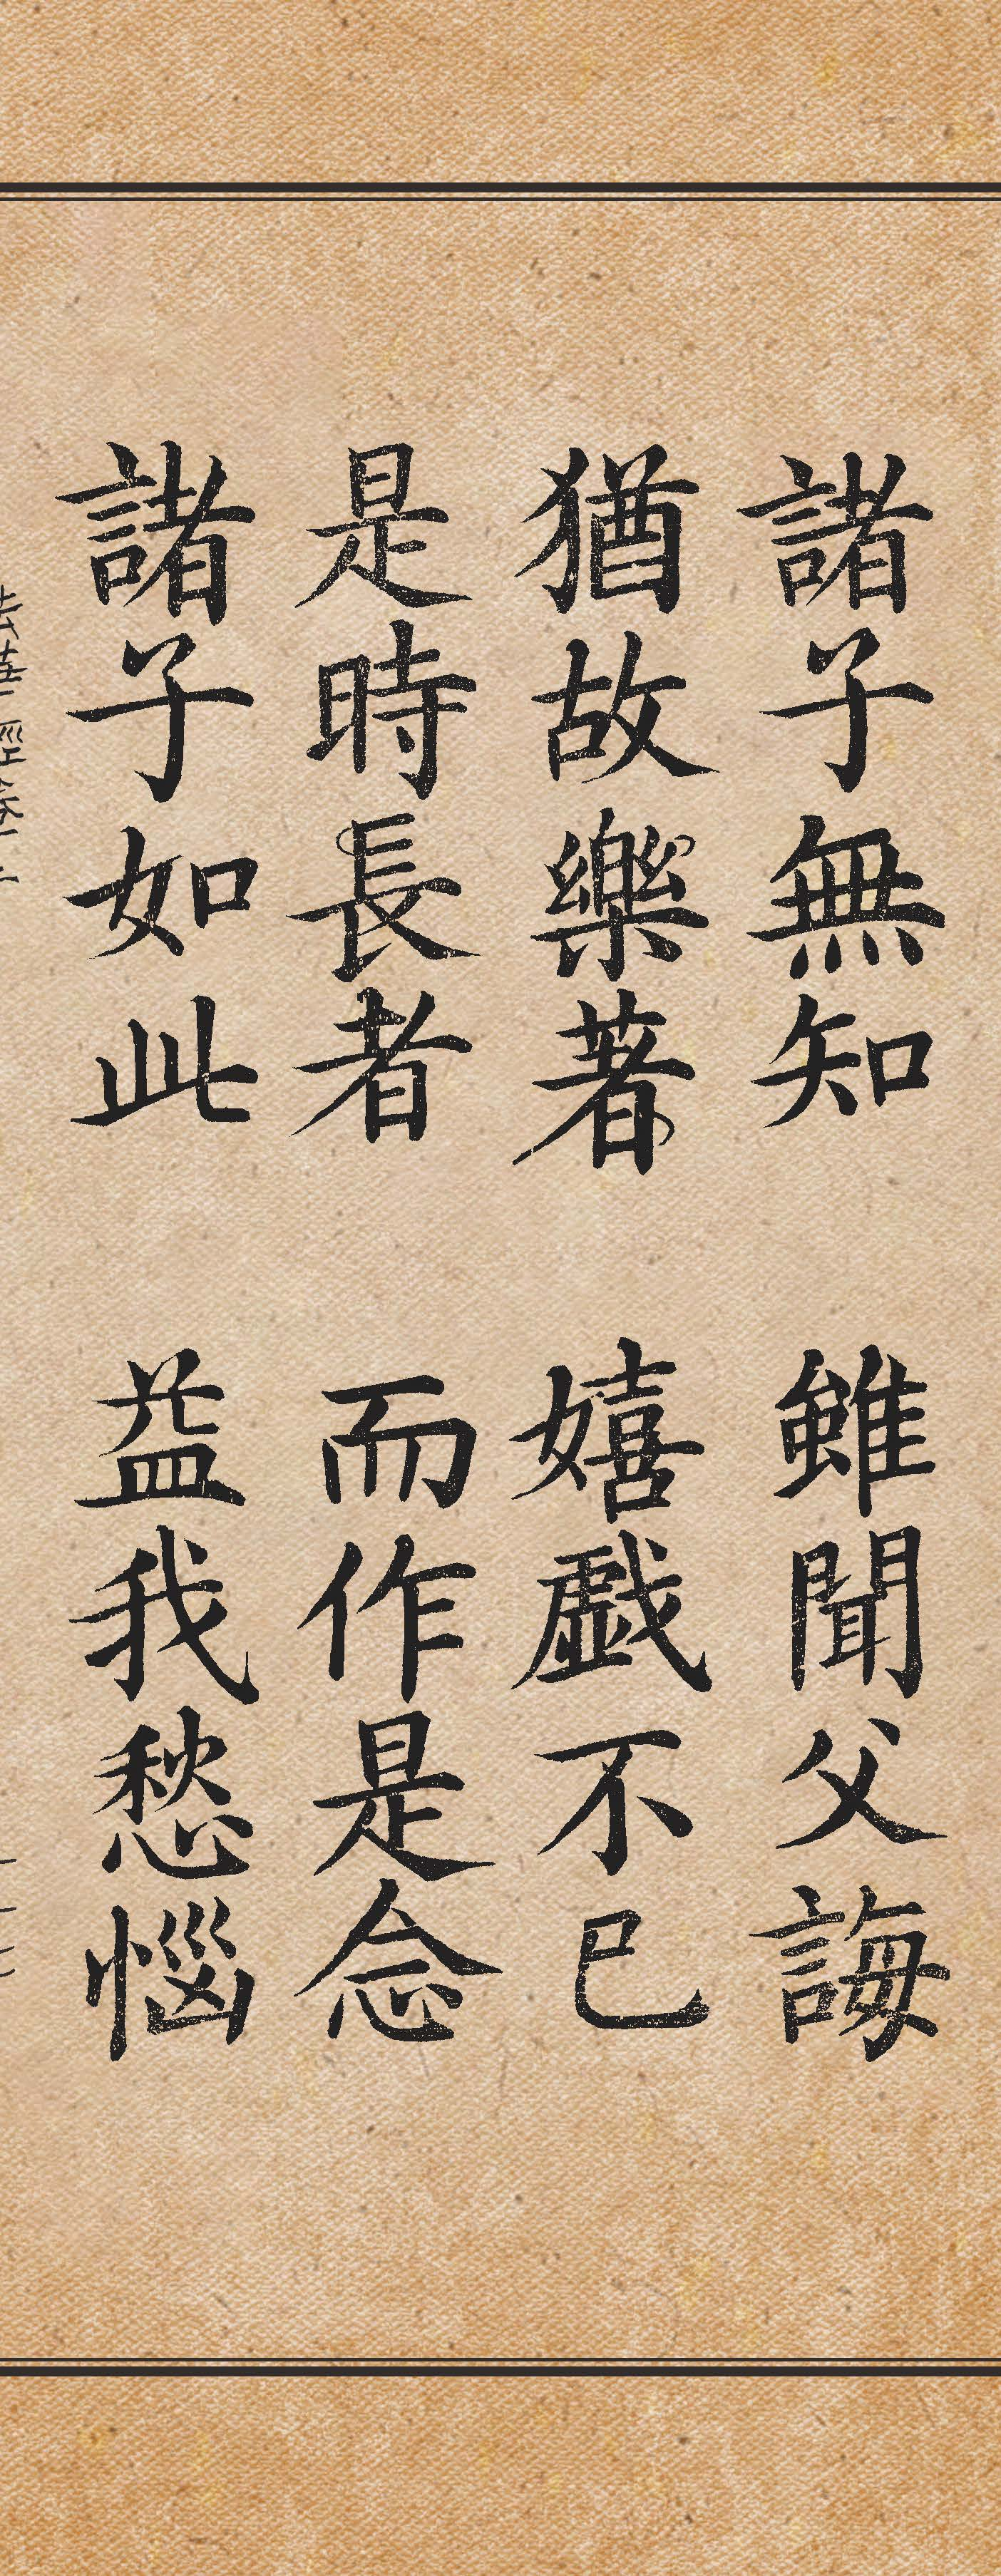 諸子無知 雖聞父誨
猶故樂著 嬉戲不已
是時長者 而作是念
諸子如此 益我愁惱